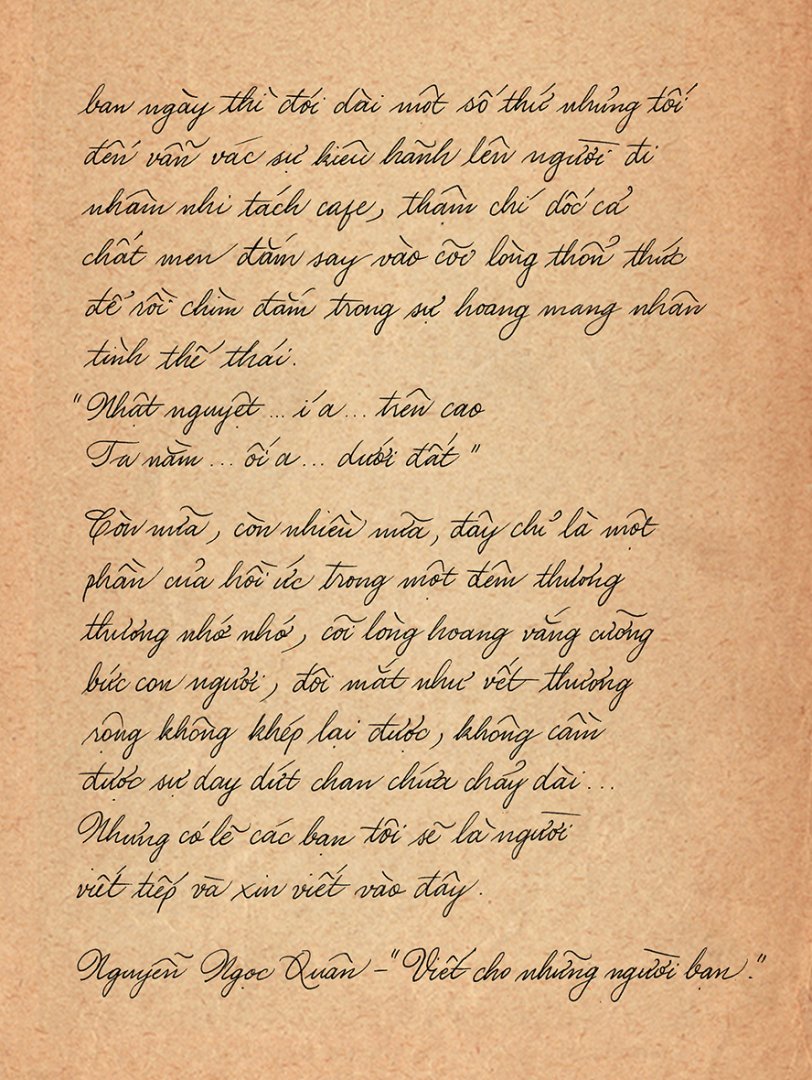 ban ngày thì đói dài một số thứ nhưng tối
đến vẫn vác sự kiêu hãnh lên người đi
nhâm nhi tách cafe, thậm chí dốc cả
chất men đắm say vào cõi lòng thổn thức
để rồi chìm đắm trong sự hoang mang nhân
tình thế thái.
"Nhật nguyệt ... í a ... trên cao
Ta nằm ... ối a ... dưới đất"
Còn nữa, còn nhiều nữa, đây chỉ là một
phần của hồi ức trong một đêm thương
thương nhớ nhớ, cõi lòng hoang vắng cưỡng
bức con người, đôi mắt như vết thương
rộng không khép lại được, không cầm
được sự day dứt chan chứa chảy dài ...
Nhưng có lẽ các bạn tôi sẽ là người
viết tiếp và xin viết vào đây.
Nguyễn Ngọc Quân - "Viết cho những người bạn."